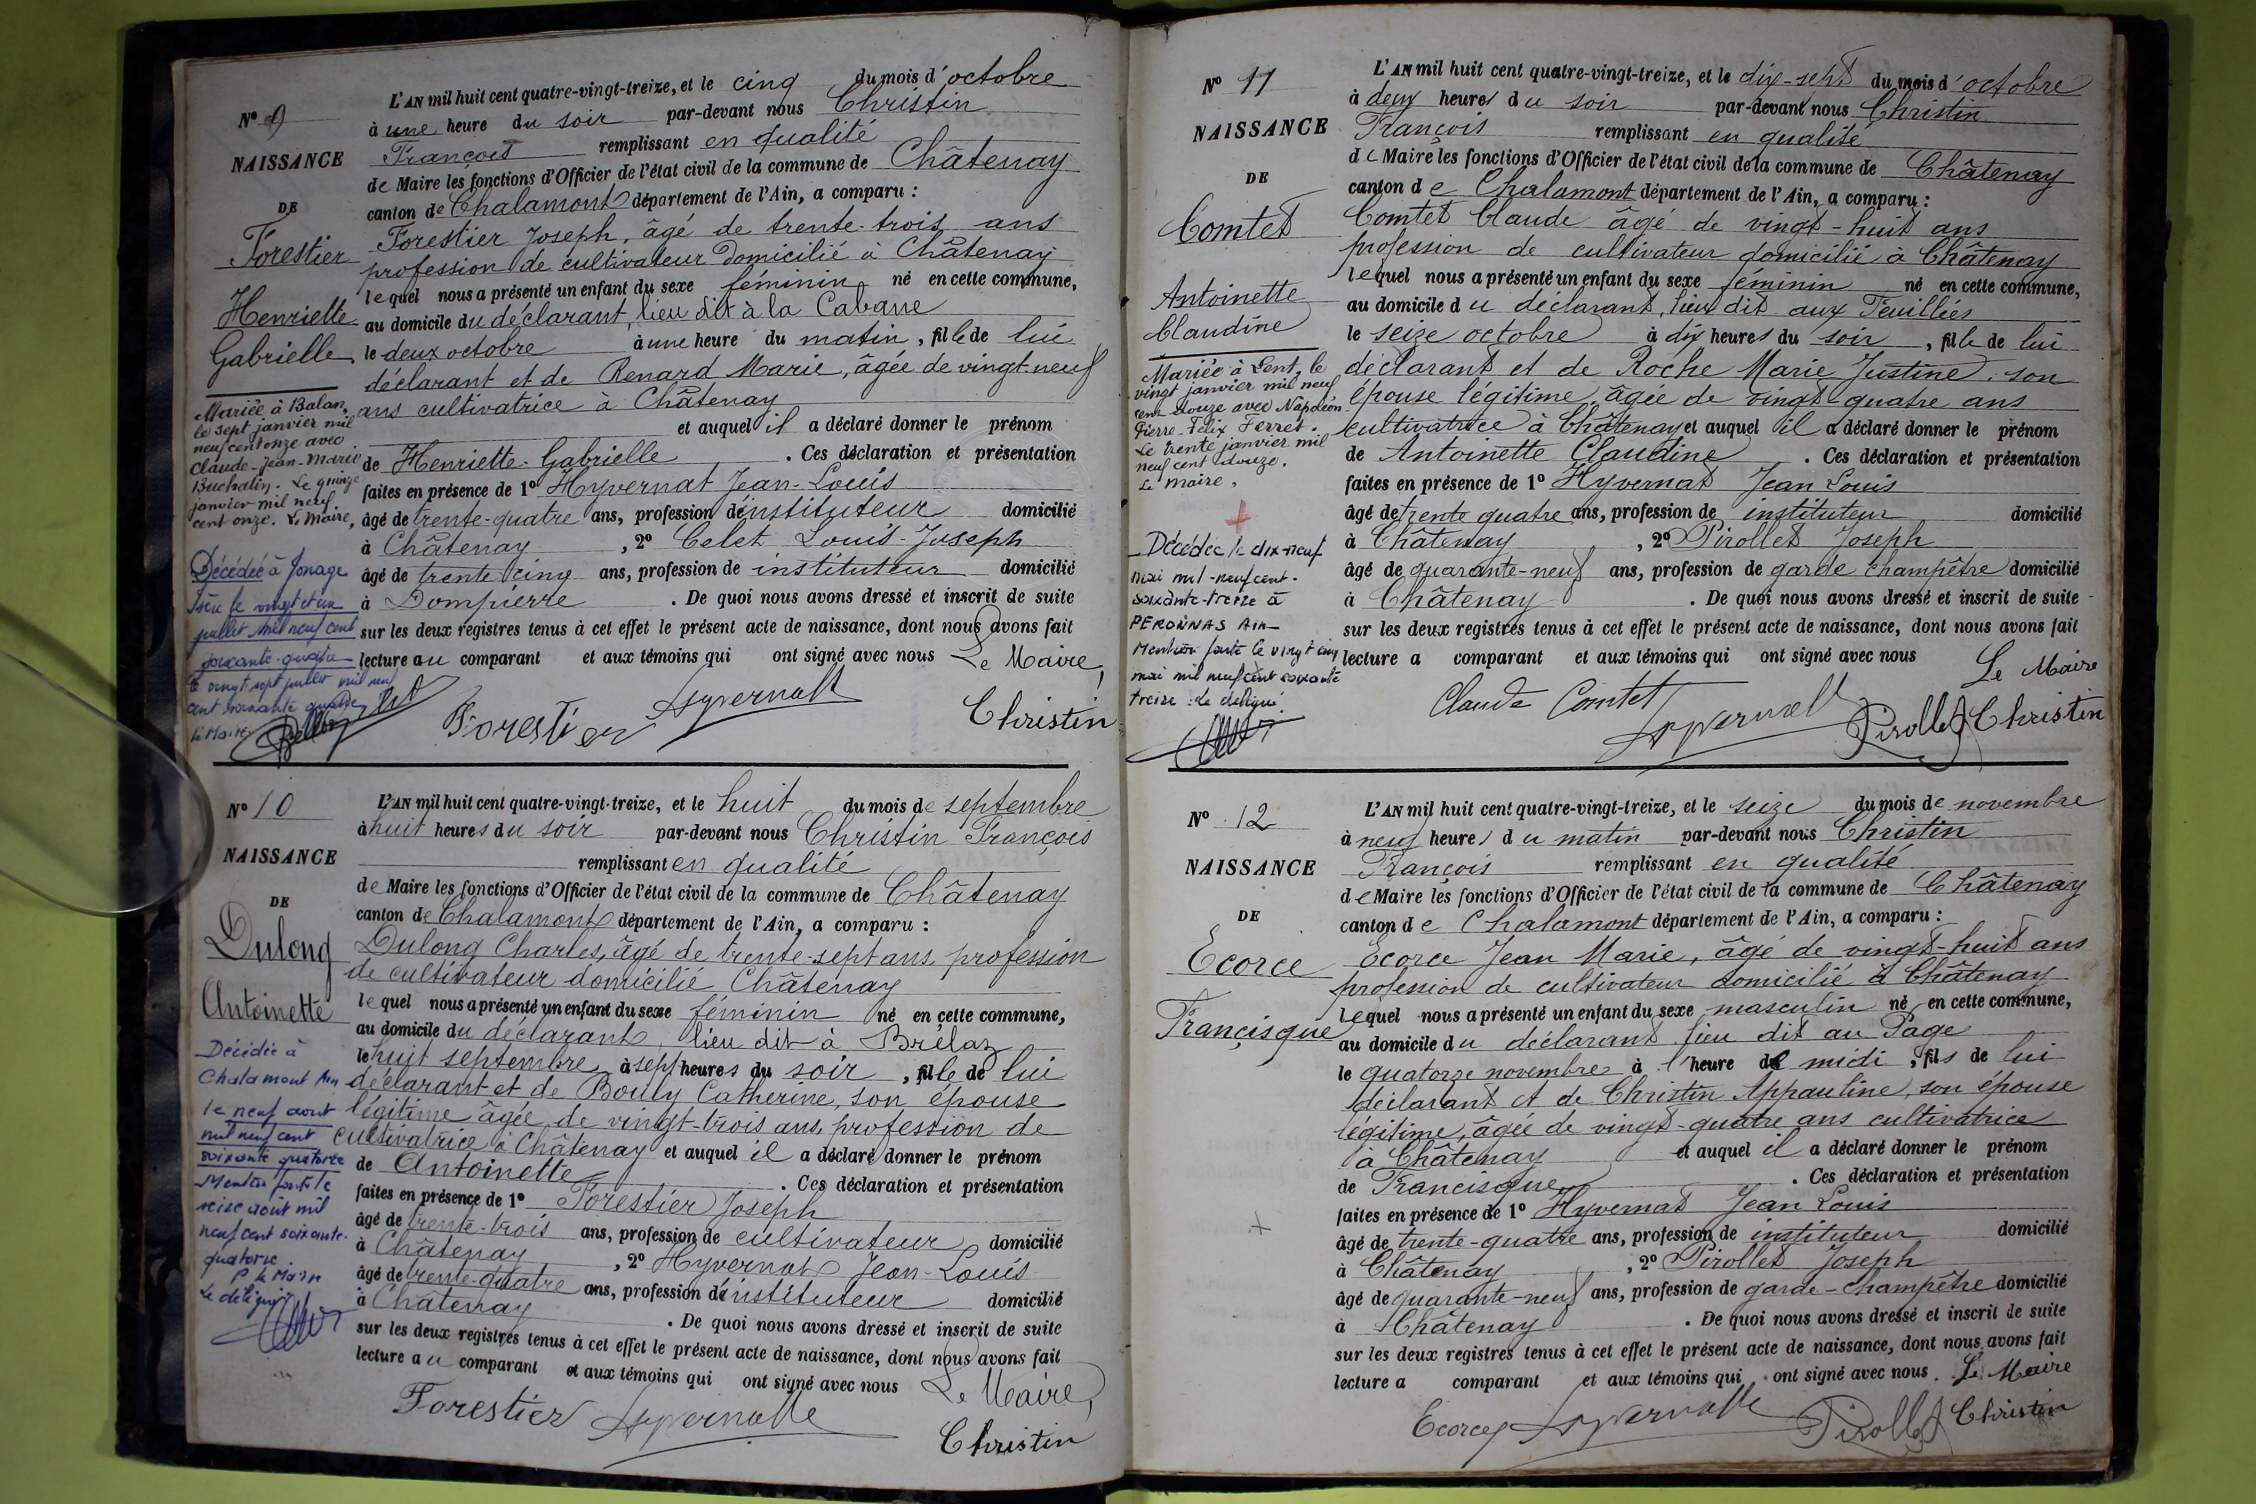 N° 9
NAISSANCE
DE
Forestier
Henriette
Gabrielle
Mariée à Balan,
le sept janvier mil
neuf cent onze avec
Claude-Jean-Marie
Buchalin. Le quinze
janvier mil neuf
cent onze. Le Maire,
Décédée à Jonage
Isère le vingt et un
juillet mil neuf cent
soixante-quatre
le vingt sept juillet mil neuf
cent soixante quatre
le Maire
L'AN mil huit cent quatre-vingt-treize, et le cinq du mois d'octobre
à une heure du soir par-devant nous Christin
François remplissant en qualité
de Maire les fonctions d'Officier de l'état civil de la commune de Châtenay
canton de Chalamont département de l'Ain, a comparu :
Forestier Joseph, âgé de trente-trois ans
profession de cultivateur domicilié à Châtenay
lequel nous a présenté un enfant du sexe féminin né en cette commune,
au domicile du déclarant, lieu dit à la Cabane
le deux octobre à une heure du matin, fille de lui
déclarant et de Renard Marie, âgée de vingt-neuf
ans cultivatrice à Châtenay
et auquel il a déclaré donner le prénom
de Henriette-Gabrielle. Ces déclaration et présentation
faites en présence de 1° Hyvernat Jean-Louis
âgé de trente-quatre ans, profession d'instituteur domicilié
à Châtenay, 2° Celet Louis-Joseph
âgé de trente cinq ans, profession de instituteur domicilié
à Dompierre. De quoi nous avons dressé et inscrit de suite
sur les deux registres tenus à cet effet le présent acte de naissance, dont nous avons fait
lecture au comparant et aux témoins qui ont signé avec nous Le Maire,
Forestier Hyvernat Christin
N° 10
NAISSANCE
DE
Dulong
Antoinette
Décédée à
Chalamont Ain
le neuf août
mil neuf cent
soixante quatorze
Mention faite le
seize août mil
neuf cent soixante-
quatorze
P. le Maire
Le délégué
L'AN mil huit cent quatre-vingt-treize, et le huit du mois de septembre
à huit heures du soir par-devant nous Christin François
remplissant en qualité
de Maire les fonctions d'Officier de l'état civil de la commune de Châtenay
canton de Chalamont département de l'Ain, a comparu :
Dulong Charles, âgé de trente-sept ans, profession
de cultivateur domicilié Châtenay
lequel nous a présenté un enfant du sexe féminin né en cette commune,
au domicile du déclarant, lieu dit à Brélaz
le huit septembre à sept heures du soir, fille de lui
déclarant et de Bouly Catherine, son épouse
légitime âgée de vingt-trois ans, profession de
cultivatrice à Châtenay et auquel il a déclaré donner le prénom
de Antoinette. Ces déclaration et présentation
faites en présence de 1° Forestier Joseph
âgé de trente-trois ans, profession de cultivateur domicilié
à Châtenay, 2° Hyvernat Jean-Louis
âgé de trente-quatre ans, profession d'instituteur domicilié
à Châtenay. De quoi nous avons dressé et inscrit de suite
sur les deux registres tenus à cet effet le présent acte de naissance, dont nous avons fait
lecture au comparant et aux témoins qui ont signé avec nous Le Maire,
Forestier Hyvernat Christin
N° 11
NAISSANCE
DE
Comtet
Antoinette
Claudine
Mariée à Lent, le
vingt janvier mil neuf
cent douze avec Napoléon
Pierre-Félix Ferret.
Le trente janvier mil
neuf cent douze.
Le Maire,
Décédée le dix-neuf
mai mil-neuf cent-
soixante-treize à
PERONNAS Ain
Mention faite le vingt cinq
mai mil neuf cent soixante
treize : Le délégué.
L'AN mil huit cent quatre-vingt-treize, et le dix-sept du mois d'octobre
à deux heures du soir par-devant nous Christin
François remplissant en qualité
de Maire les fonctions d'Officier de l'état civil de la commune de Châtenay
canton de Chalamont département de l'Ain, a comparu :
Comtet Claude âgé de vingt-huit ans
profession de cultivateur domicilié à Châtenay
lequel nous a présenté un enfant du sexe féminin né en cette commune,
au domicile du déclarant, lieu dit aux Feuillées
le seize octobre à dix heures du soir, fille de lui
déclarant et de Roche Marie Justine, son
épouse légitime, âgée de vingt-quatre ans
cultivatrice à Châtenay et auquel il a déclaré donner le prénom
de Antoinette Claudine. Ces déclaration et présentation
faites en présence de 1° Hyvernat Jean Louis
âgé de trente quatre ans, profession de instituteur domicilié
à Châtenay, 2° Pirollet Joseph
âgé de quarante-neuf ans, profession de garde champêtre domicilié
à Châtenay. De quoi nous avons dressé et inscrit de suite
sur les deux registres tenus à cet effet le présent acte de naissance, dont nous avons fait
lecture a comparant et aux témoins qui ont signé avec nous Le Maire
Claude Comtet Hyvernat Pirollet Christin
N° 12
NAISSANCE
DE
Ecorce
Francisque
L'AN mil huit cent quatre-vingt-treize, et le seize du mois de novembre
à neuf heures du matin par-devant nous Christin
François remplissant en qualité
de Maire les fonctions d'Officier de l'état civil de la commune de Châtenay
canton de Chalamont département de l'Ain, a comparu :
Ecorce Jean Marie, âgé de vingt-huit ans
profession de cultivateur domicilié à Châtenay
lequel nous a présenté un enfant du sexe masculin né en cette commune,
au domicile du déclarant lieu dit au Page
le quatorze novembre à l'heure de midi, fils de lui
déclarant et de Christin Appauline, son épouse
légitime, âgée de vingt-quatre ans cultivatrice
à Châtenay et auquel il a déclaré donner le prénom
de Francisque. Ces déclaration et présentation
faites en présence de 1° Hyvernat Jean Louis
âgé de trente-quatre ans, profession de instituteur domicilié
à Châtenay, 2° Pirollet Joseph
âgé de quarante-neuf ans, profession de garde-champêtre domicilié
à Châtenay. De quoi nous avons dressé et inscrit de suite
sur les deux registres tenus à cet effet le présent acte de naissance, dont nous avons fait
lecture a comparant et aux témoins qui ont signé avec nous. Le Maire
Ecorce Hyvernat Pirollet Christin